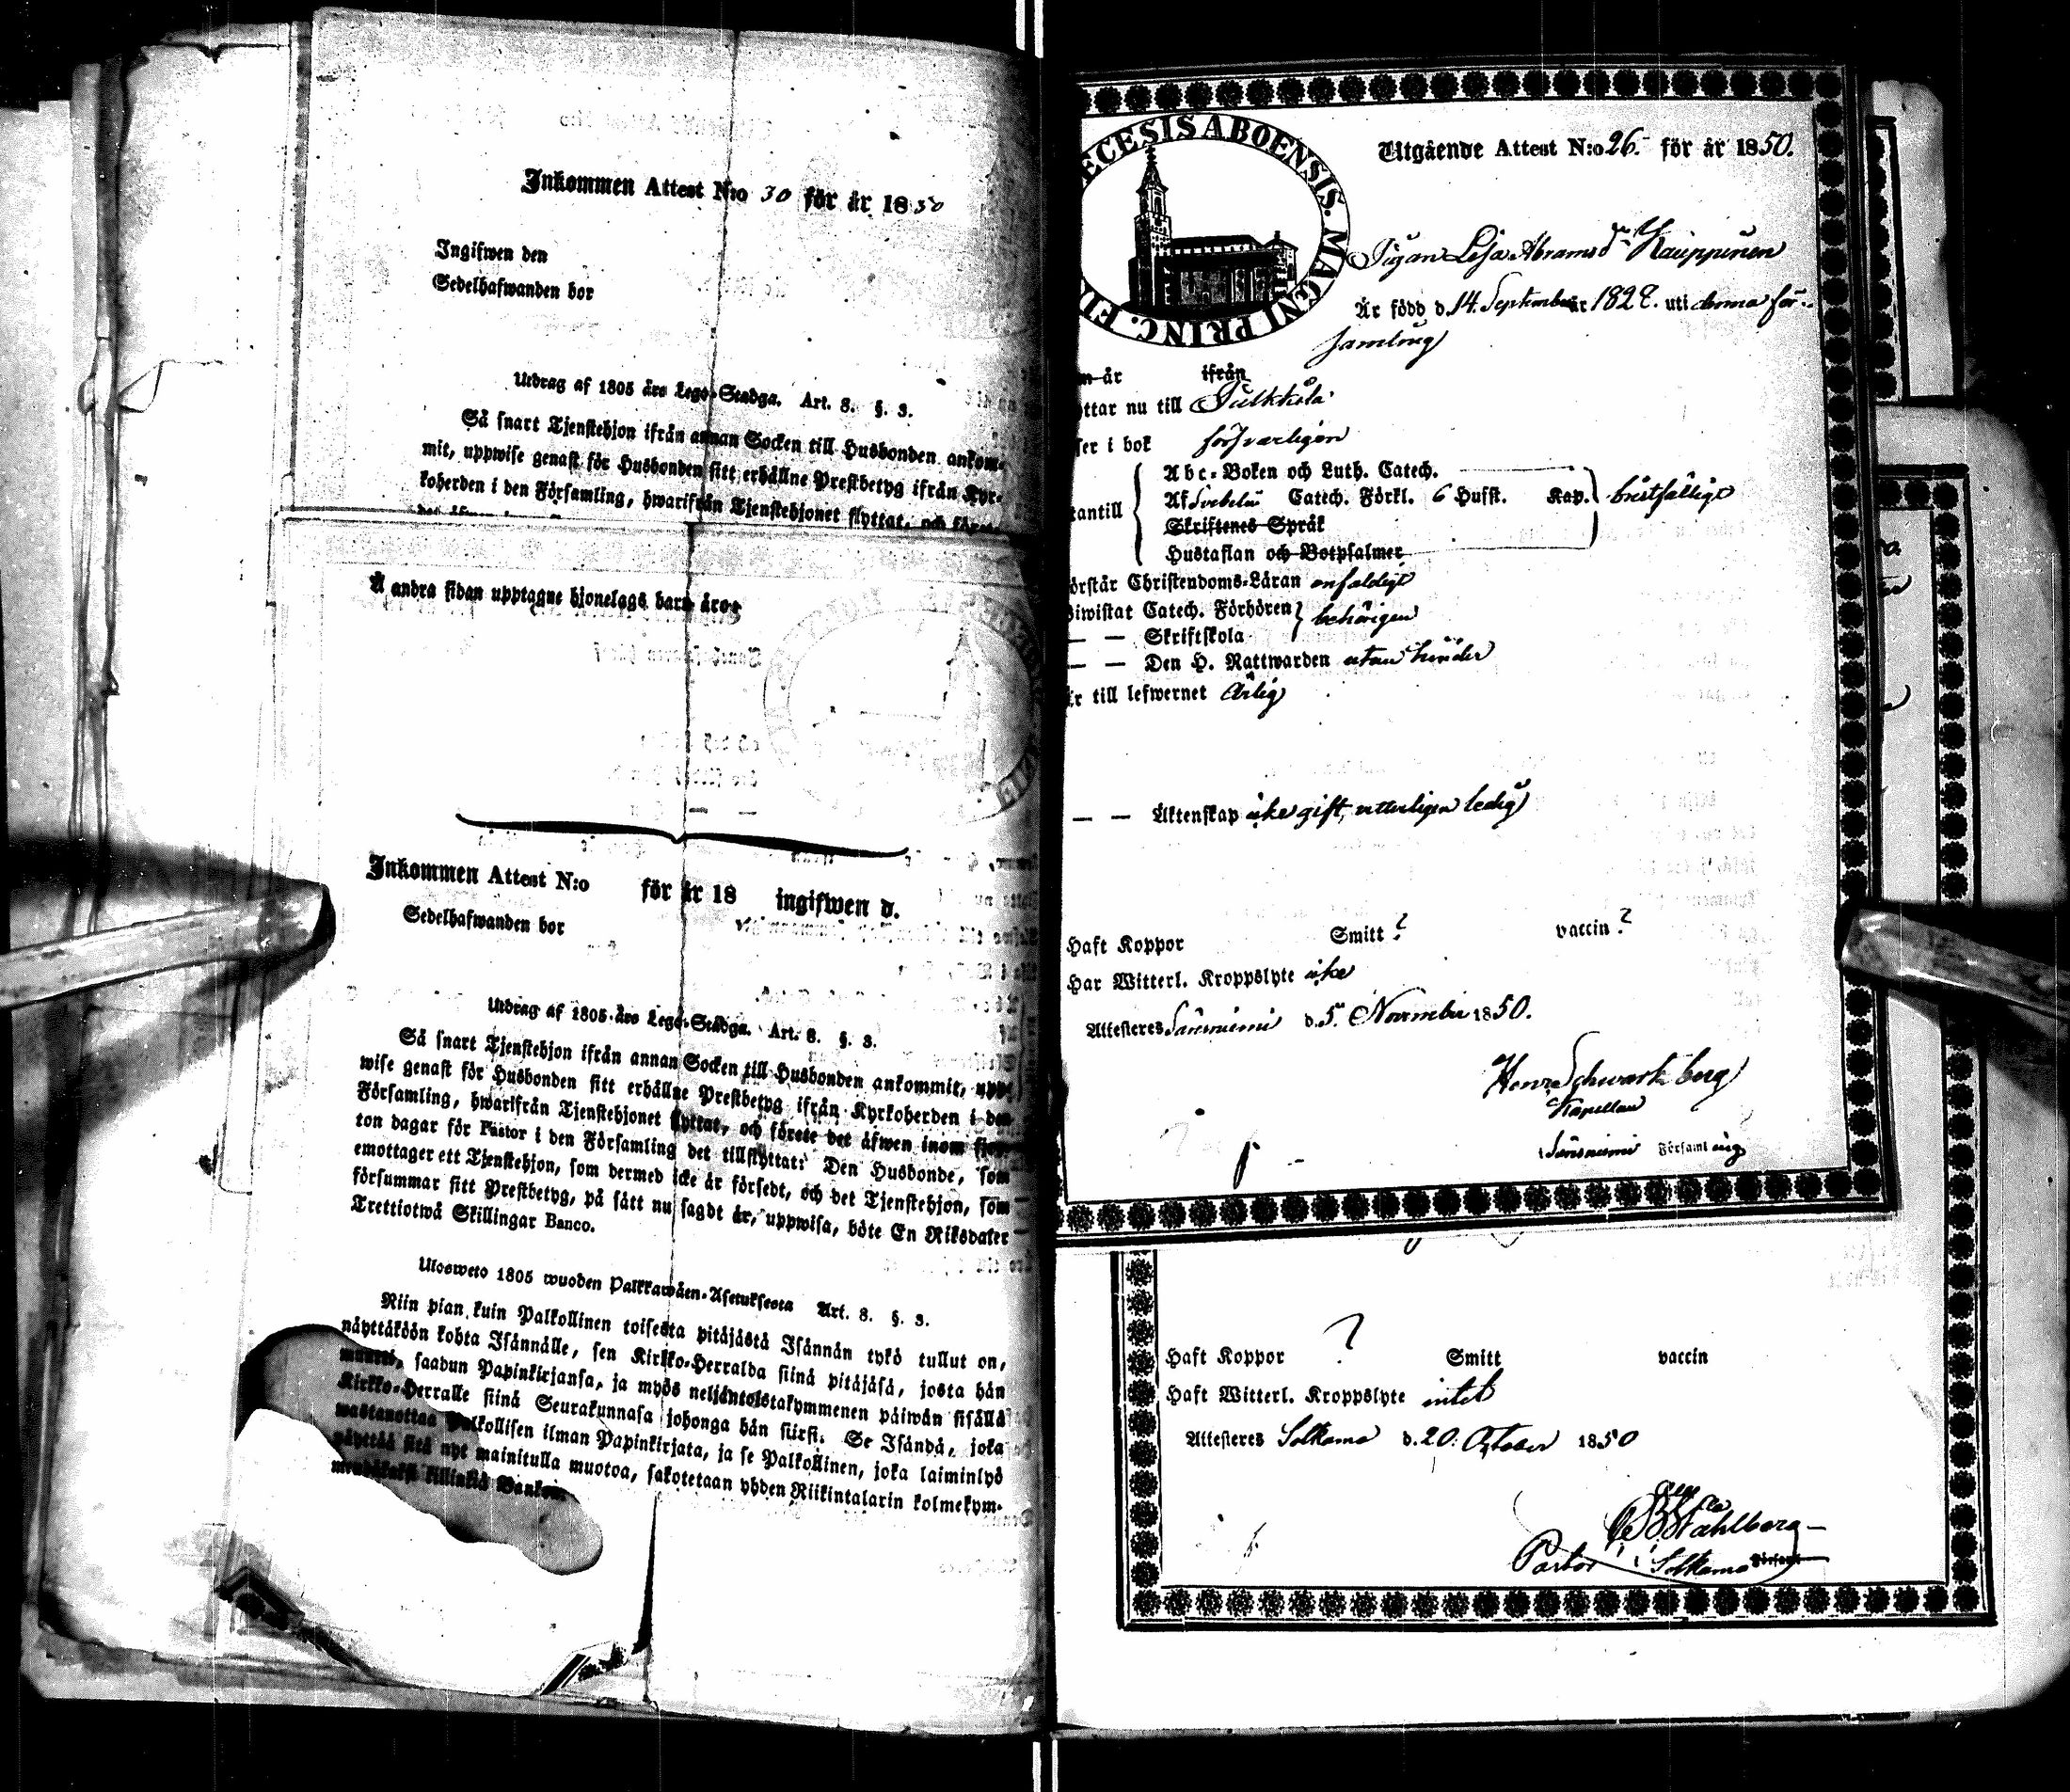 Inkommen Attest N:o 30 för år 1850
Ingifwen den
Sedelhafwanden bor
Utdrag af 1805 års Lego-Stadga. Art. 8. §. 3.
Så snart Tjenstehjon ifrån annan Socken till Husbonden ankom-
mit, uppwise genast för Husbonden sitt erhållne Prestbetyg ifrån Kyr-
koherden i den Församling, hwarifrån Tjenstehjonet flyttat, och
Å andra sidan upptagne hjonelags barn äro:
Inkommen Attest N:o för år 18 ingifwen d.
Sedelhafwanden bor
Utdrag af 1805 års Lego-Stadga. Art. 8. §. 3.
Så snart Tjenstehjon ifrån annan Socken till Husbonden ankommit, upp-
wise genast för Husbonden sitt erhållne Prestbetyg ifrån Kyrkoherden i den
Församling, hwarifrån Tjenstehjonet flyttat, och förete det äfwen inom fjor-
ton dagar för Pastor i den Församling det tillflyttat: Den Husbonde, som
emottager ett Tjenstehjon, som dermed icke är försedt, och det Tjenstehjon, som
försummar sitt Prestbetyg, på sätt nu sagdt är, uppwisa, böte En Riksdaler
Trettiotwå Skillingar Banco.
Ulosweto 1805 wuoden Palkkawäen-Asetuksesta Art. 8. §. 3.
Niin pian kuin Palkollinen toisesta pitäjästä Isännän tykö tullut on,
näyttäköön kohta Isännälle, sen Kirkko-Herralda siinä pitäjäsä, josta hän
muutti, saadun Papinkirjansa, ja myös neljäntoistakymmenen päiwän sisällä
Kirkko-Herralle siinä Seurakunnasa johonga hän siirsi. Se Isändä, joka
wastanottaa Palkollisen ilman Papinkirjata, ja se Palkollinen, joka laiminlyö
näyttää sitä nyt mainitulla muotoa, sakotetaan yhden Riikintalarin kolmekym-
mendäkaksi killinkiä Bankos.
ECESIS ABOENSIS. MAGNI PRINC. FI
Utgående Attest N:o 26. för år 1850.
Pigan Lisa Abramsdr Kauppinen
Är född d. 14. September år 1828. uti denna för-
samling
n år ifrån
ttar nu till Pulkkila
ser i bok försvarligen
A b c-Boken och Luth. Catech.
Af Svebelii Catech. Förkl. 6 Hufst. Kap. bristfälligt
antill
Skriftenes Språk
Hustaflan och Botpsalmer
örstår Christendoms-Läran enfaldigt
biwistat Catech. Förhören behörigen
— — Skriftskola
— — Den H. Nattwarden utan hinder
är till lefwernet ärlig
— — Äktenskap icke gift, vitterligen ledig
Haft Koppor Smitt ? vaccin ?
Har Witterl. Kroppslyte icke
Attesteres Säräisniemi d. 5. November 1850.
Henr. Schwartzberg
Kapellan
i Säräisniemi Församling
Haft Koppor ? Smitt vaccin
Haft Witterl. Kroppslyte intet
Attesteres Sotkamo d. 20: October 1850
Ståhlberg
Pastor i Sotkamo Församl